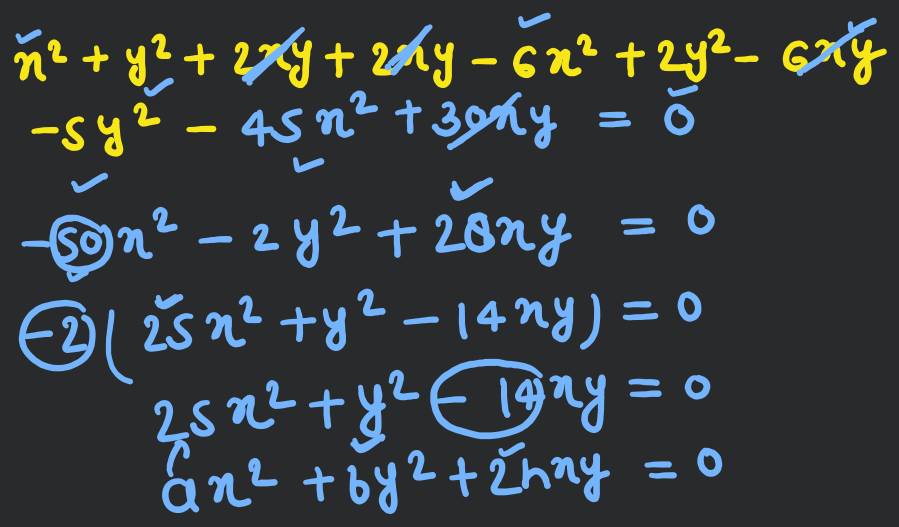 x² + y² + 2xy + 2xy - 6x² + 2y² - 6xy
-5y² - 45x² + 30xy = 0
-50x² - 2y² + 28xy = 0
-2(25x² + y² - 14xy) = 0
25x² + y² - 14xy = 0
ax² + by² + 2hxy = 0